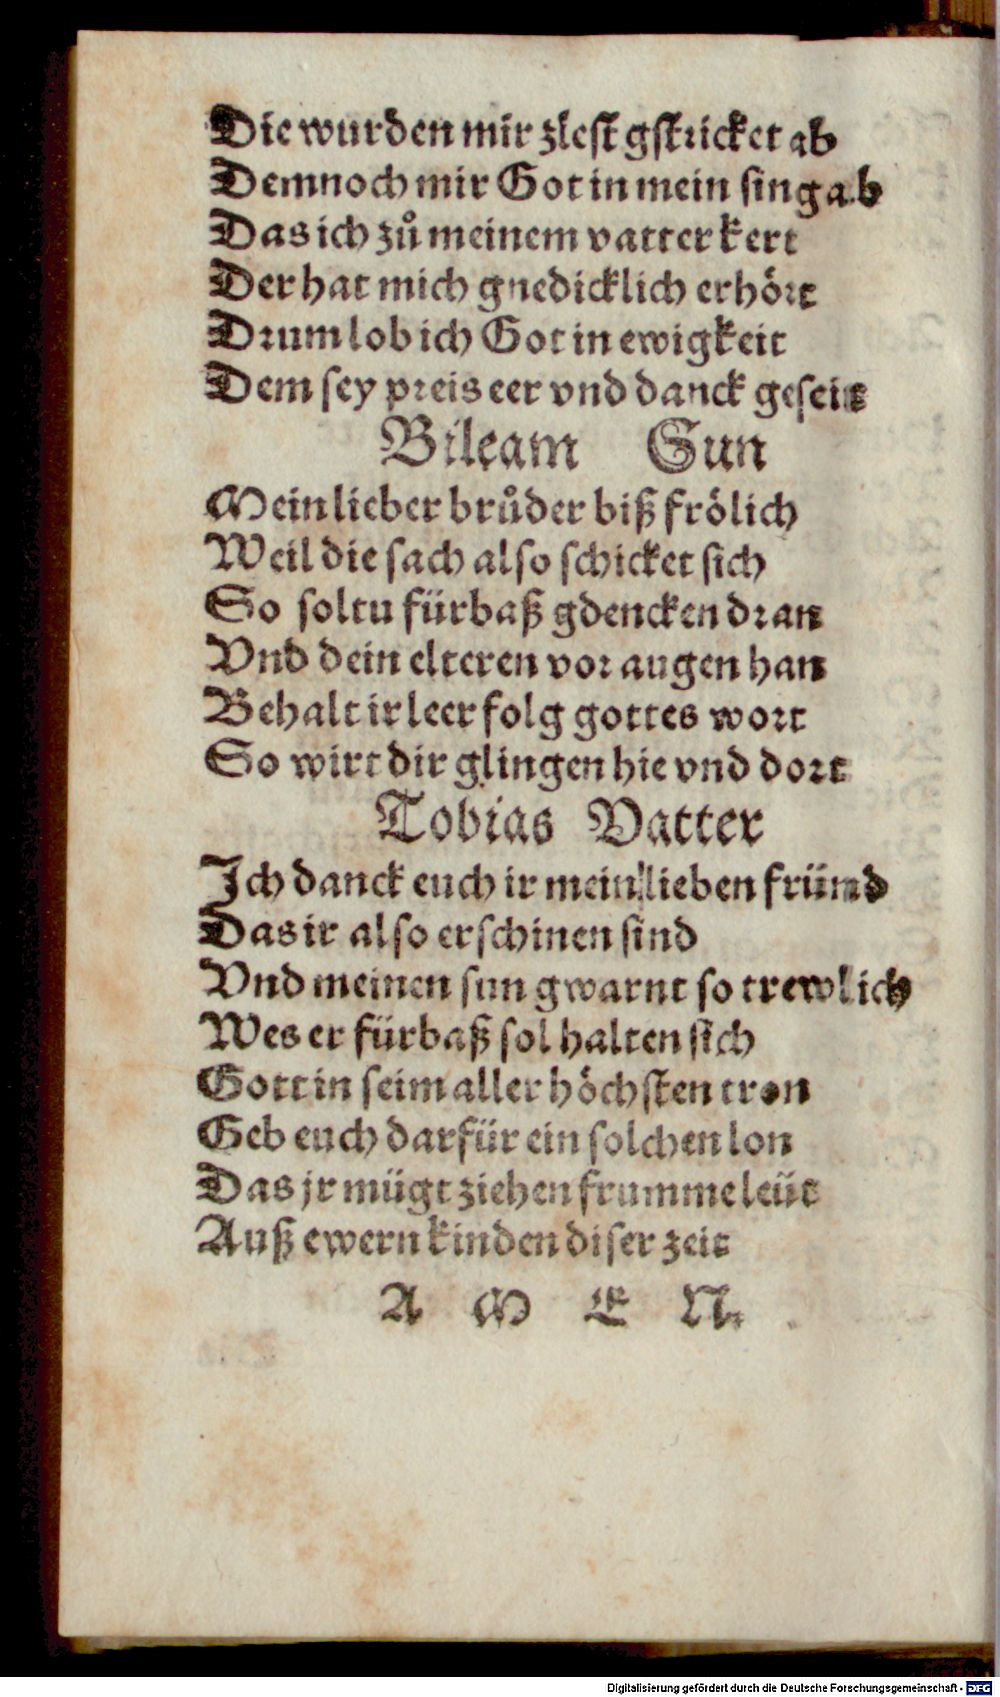 Die wurden mir zlest gstricket ab
Demnoch mir Got in mein sin gab
Das ich zů meinem vatter kert
Der hat mich gnedicklich erhört
Drum lob ich Got in ewigkeit
Dem sey preis eer vnd danck geseit
Bileam Sun
Mein lieber brůder biß frölich
Weil die sach also schicket sich
So soltu fürbaß gdencken dran
Vnd dein elteren vor augen han
Behalt ir leer folg gottes wort
So wirt dir glingen hie vnd dort
Tobias Vatter
Ich danck euch ir mein lieben fründ
Das ir also erschinen sind
Vnd meinen sun gwarnt so trewlich
Wes er fürbaß sol halten sich
Gott in seim aller höchsten tron
Geb euch darfür ein solchen lon
Das jr mügt ziehen frumme leüt
Auß ewern kinden diser zeit
A M E N.
Digitalisierung gefördert durch die Deutsche Forschungsgemeinschaft - DFG